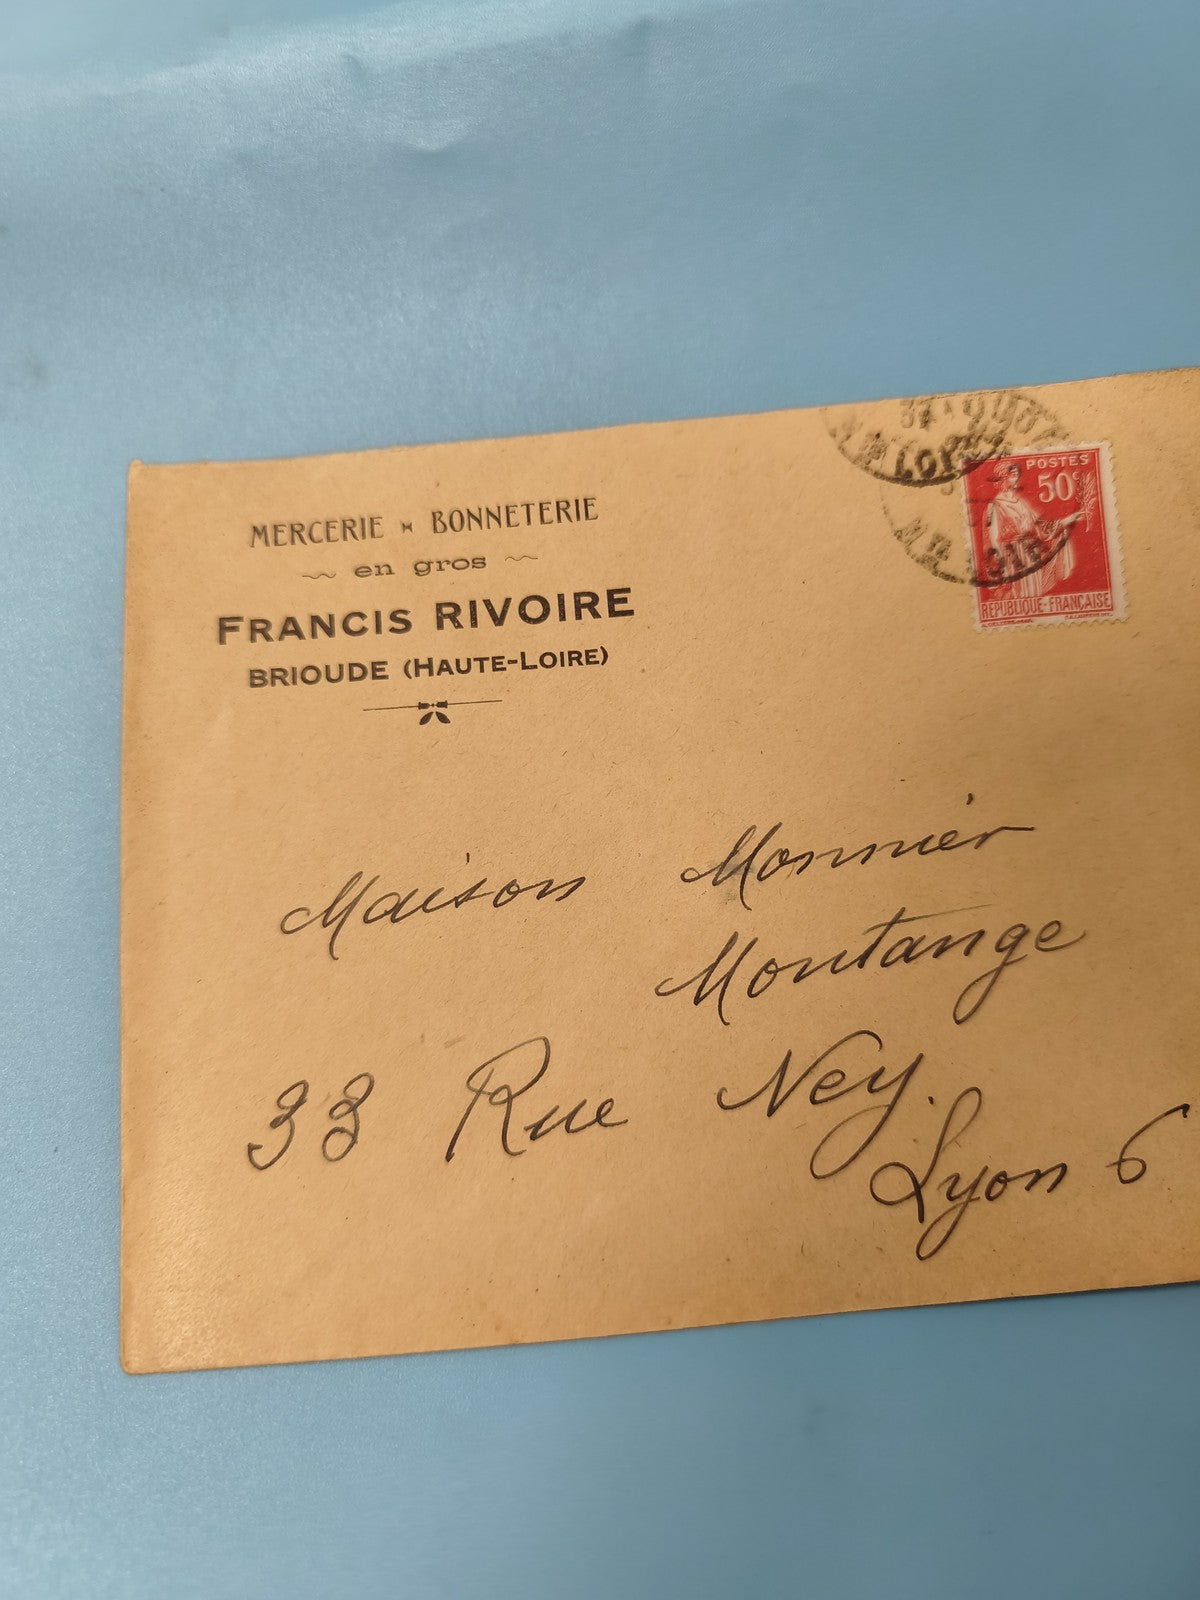 MERCERIE BONNETERIE
en gros
FRANCIS RIVOIRE
BRIOUDE (HAUTE-LOIRE)
POSTES
50c
REPUBLIQUE-FRANÇAISE
Maison Monnier
Montange
33 Rue Ney.
Lyon 6